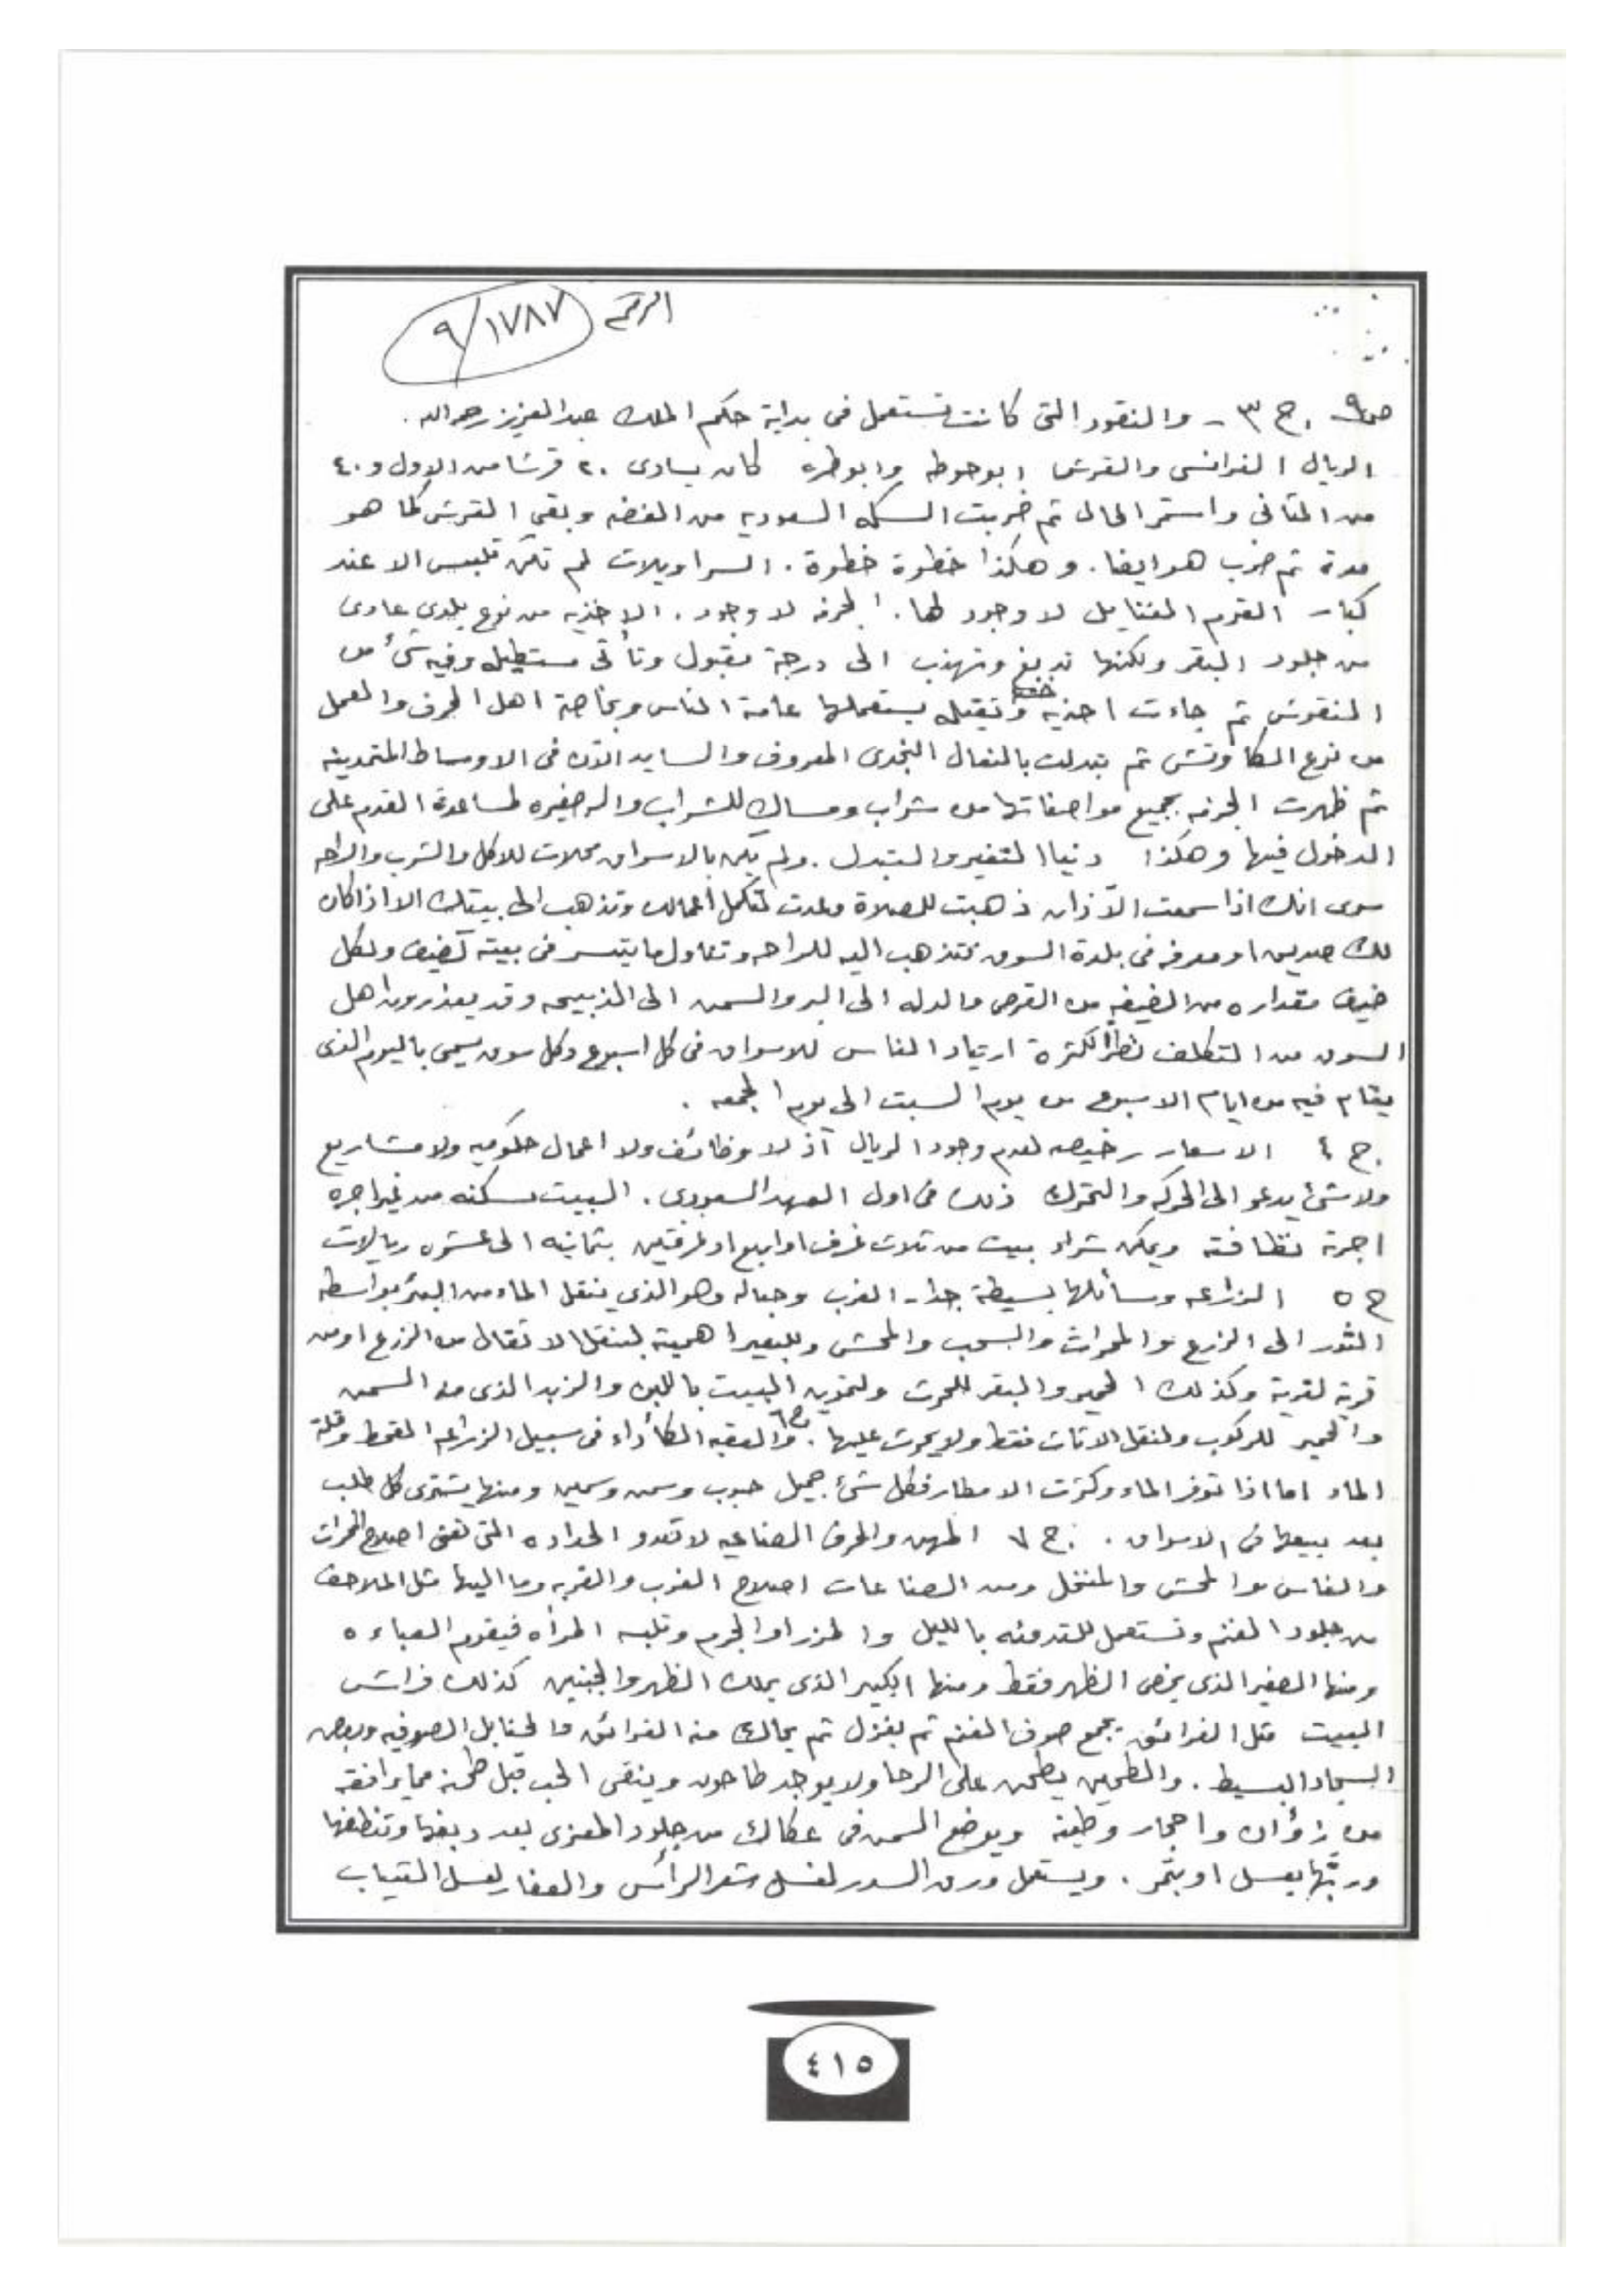 الرقم ١٧٨٧/٩
ص٩ . ج ٣ - والنقود التى كانت تستعمل فى بداية حكم الملك عبدالعزيز رحمه الله .
الريال الفرانسى والقرش ابوحوطه وابوطره كان يساوى ٢٠ قرشا من الاول و ٤٠
من الثانى واستمر الحال ثم ضربت السكه السعوديه من الفضه وبقى القرش كما هو
مدة ثم ضرب هو ايضا . وهكذا خطوة خطوة . السراويلات لم تكن تلبس الا عند
كبار القوم الفنايل لا وجود لها . الجزمه لا وجود . الاحذيه من نوع بلدى عادى
من جلود البقر ولكنها تدبغ وتهذب الى درجة مقبول وتأتى مستطيله وفيه شىء من
النقوش ثم جاءت احذيه وثقيله يستعملها عامة الناس وبخاصة اهل الحرف والعمل
من نوع الكاوتش ثم تبدلت بالنعال النجدى المعروف والسايد الآن فى الاوساط المتمدينه
ثم ظهرت الجزمه بجميع مواصفاتها من شراب ومساك للشراب واله صغيره لمساعدة القدم على
الدخول فيها وهكذا دنيا التغير والتبدل . ولم يكن بالاسواق محلات للاكل والشرب والراحه
سوى انك اذا سمعت الآذان ذهبت للصلاة وعدت لتكمل أعمالك وتذهب الى بيتك الا اذا كان
لك صديق او معرفه فى بلدة السوق فتذهب اليه للراحه وتناول ما يتيسر فى بيته كضيف ولكل
ضيف مقداره من الضيفه من القرص والدله الى البر والسمن الى الذبيحه وقد يعذرون اهل
السوق من التكلف نظرا لكثرة ارتياد الناس للاسواق فى كل اسبوع وكل سوق يسمى باليوم الذى
يقام فيه من ايام الاسبوع من يوم السبت الى يوم الجمعه .
ج ٤ الاسعار رخيصه لعدم وجود الريال آذ لا وظائف ولا اعمال حكوميه ولا مشاريع
ولا شىء يدعو الى الحركه والتحرك ذلك فى اول العهد السعودى . البيت تسكنه من غير اجرة
اجرته نظافته ويمكن شراء بيت من ثلاث غرف او اربع او غرفتين بثمانيه الى عشره ريالات
ج ٥ الزراعه وسائلها بسيطة جدا . الغرب وحباله وهو الذى ينقل الماء من البئر بواسطه
الثور الى الزرع والمحراث والسحب والمحش وللبعير اهميته لنقل الاثقال من الزرع او من
قرية لقرية وكذلك الحمير والبقر للحرث ولتموين البيت باللبن والزبد الذى منه السمن
والحمير للركوب ولنقل الاثاث فقط ولا يحرث عليها . ج٦ والعقبه الكأداء فى سبيل الزراعه القحط وقلة
الماء اما اذا توفر الماء وكثرت الامطار فكل شىء جميل حبوب وسمن وسمين ومنها يشترى كل طلب
بعد بيعها فى الاسواق . ج ٧ المهن والحرف الصناعيه لا تعدو الحداده التى تعنى اصلاح المحراث
والفاس والمحش والمنخل ومن الصناعات اصلاح الغرب والقربه وما اليها مثل الملاحف
من جلود الغنم وتستعمل للتدفئه بالليل والمزر او الجرم وتلبسه المرأه فيقوم العباءه
ومنها الصغير الذى يخص الظهر فقط ومنها الكبير الذى يملك الظهر والجنبين كذلك فراش
البيت مثل الفرائق يجمع صوف الغنم ثم يغزل ثم يحاك منه الفرائق والحنابل الصوفيه وبعض
السجاد البسيط . والطحين يطحن على الرحا ولا يوجد طاحون وينقى الحب قبل طحنه مما يرافقه
من زؤان واحجار وطينه ويوضع السمن فى عكاك من جلود المعزى بعد دبغها وتنظيفها
وربّها بعسل او بتمر . ويستعمل ورق السدر لغسل شعر الرأس والعفار لغسل الثياب
٤١٥